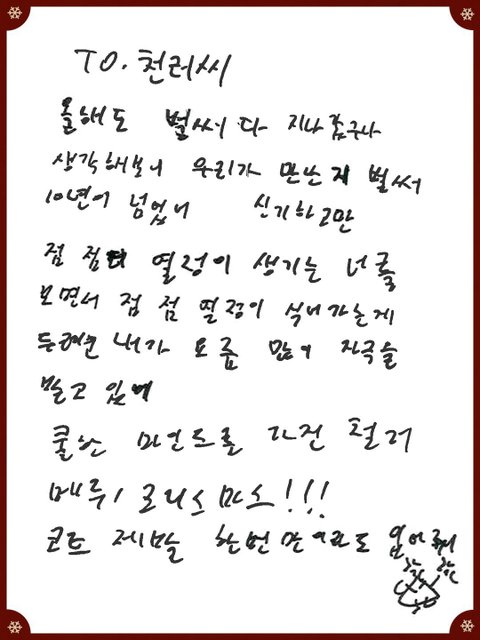 TO. 천러씨
올해도 벌써 다 지나갔구나
생각해보니 우리가 만난지 벌써
10년이 넘었니 신기하고만
점 점더 열정이 생기는 너를
보면서 점 점 열정이 식어가는게
두려운 내가 요즘 많이 자극을
받고 있어
쿨한 마인드를 가진 천러
메루ㅣ 크리스마스!!!
코트 제발 한번만이라도 입어줘